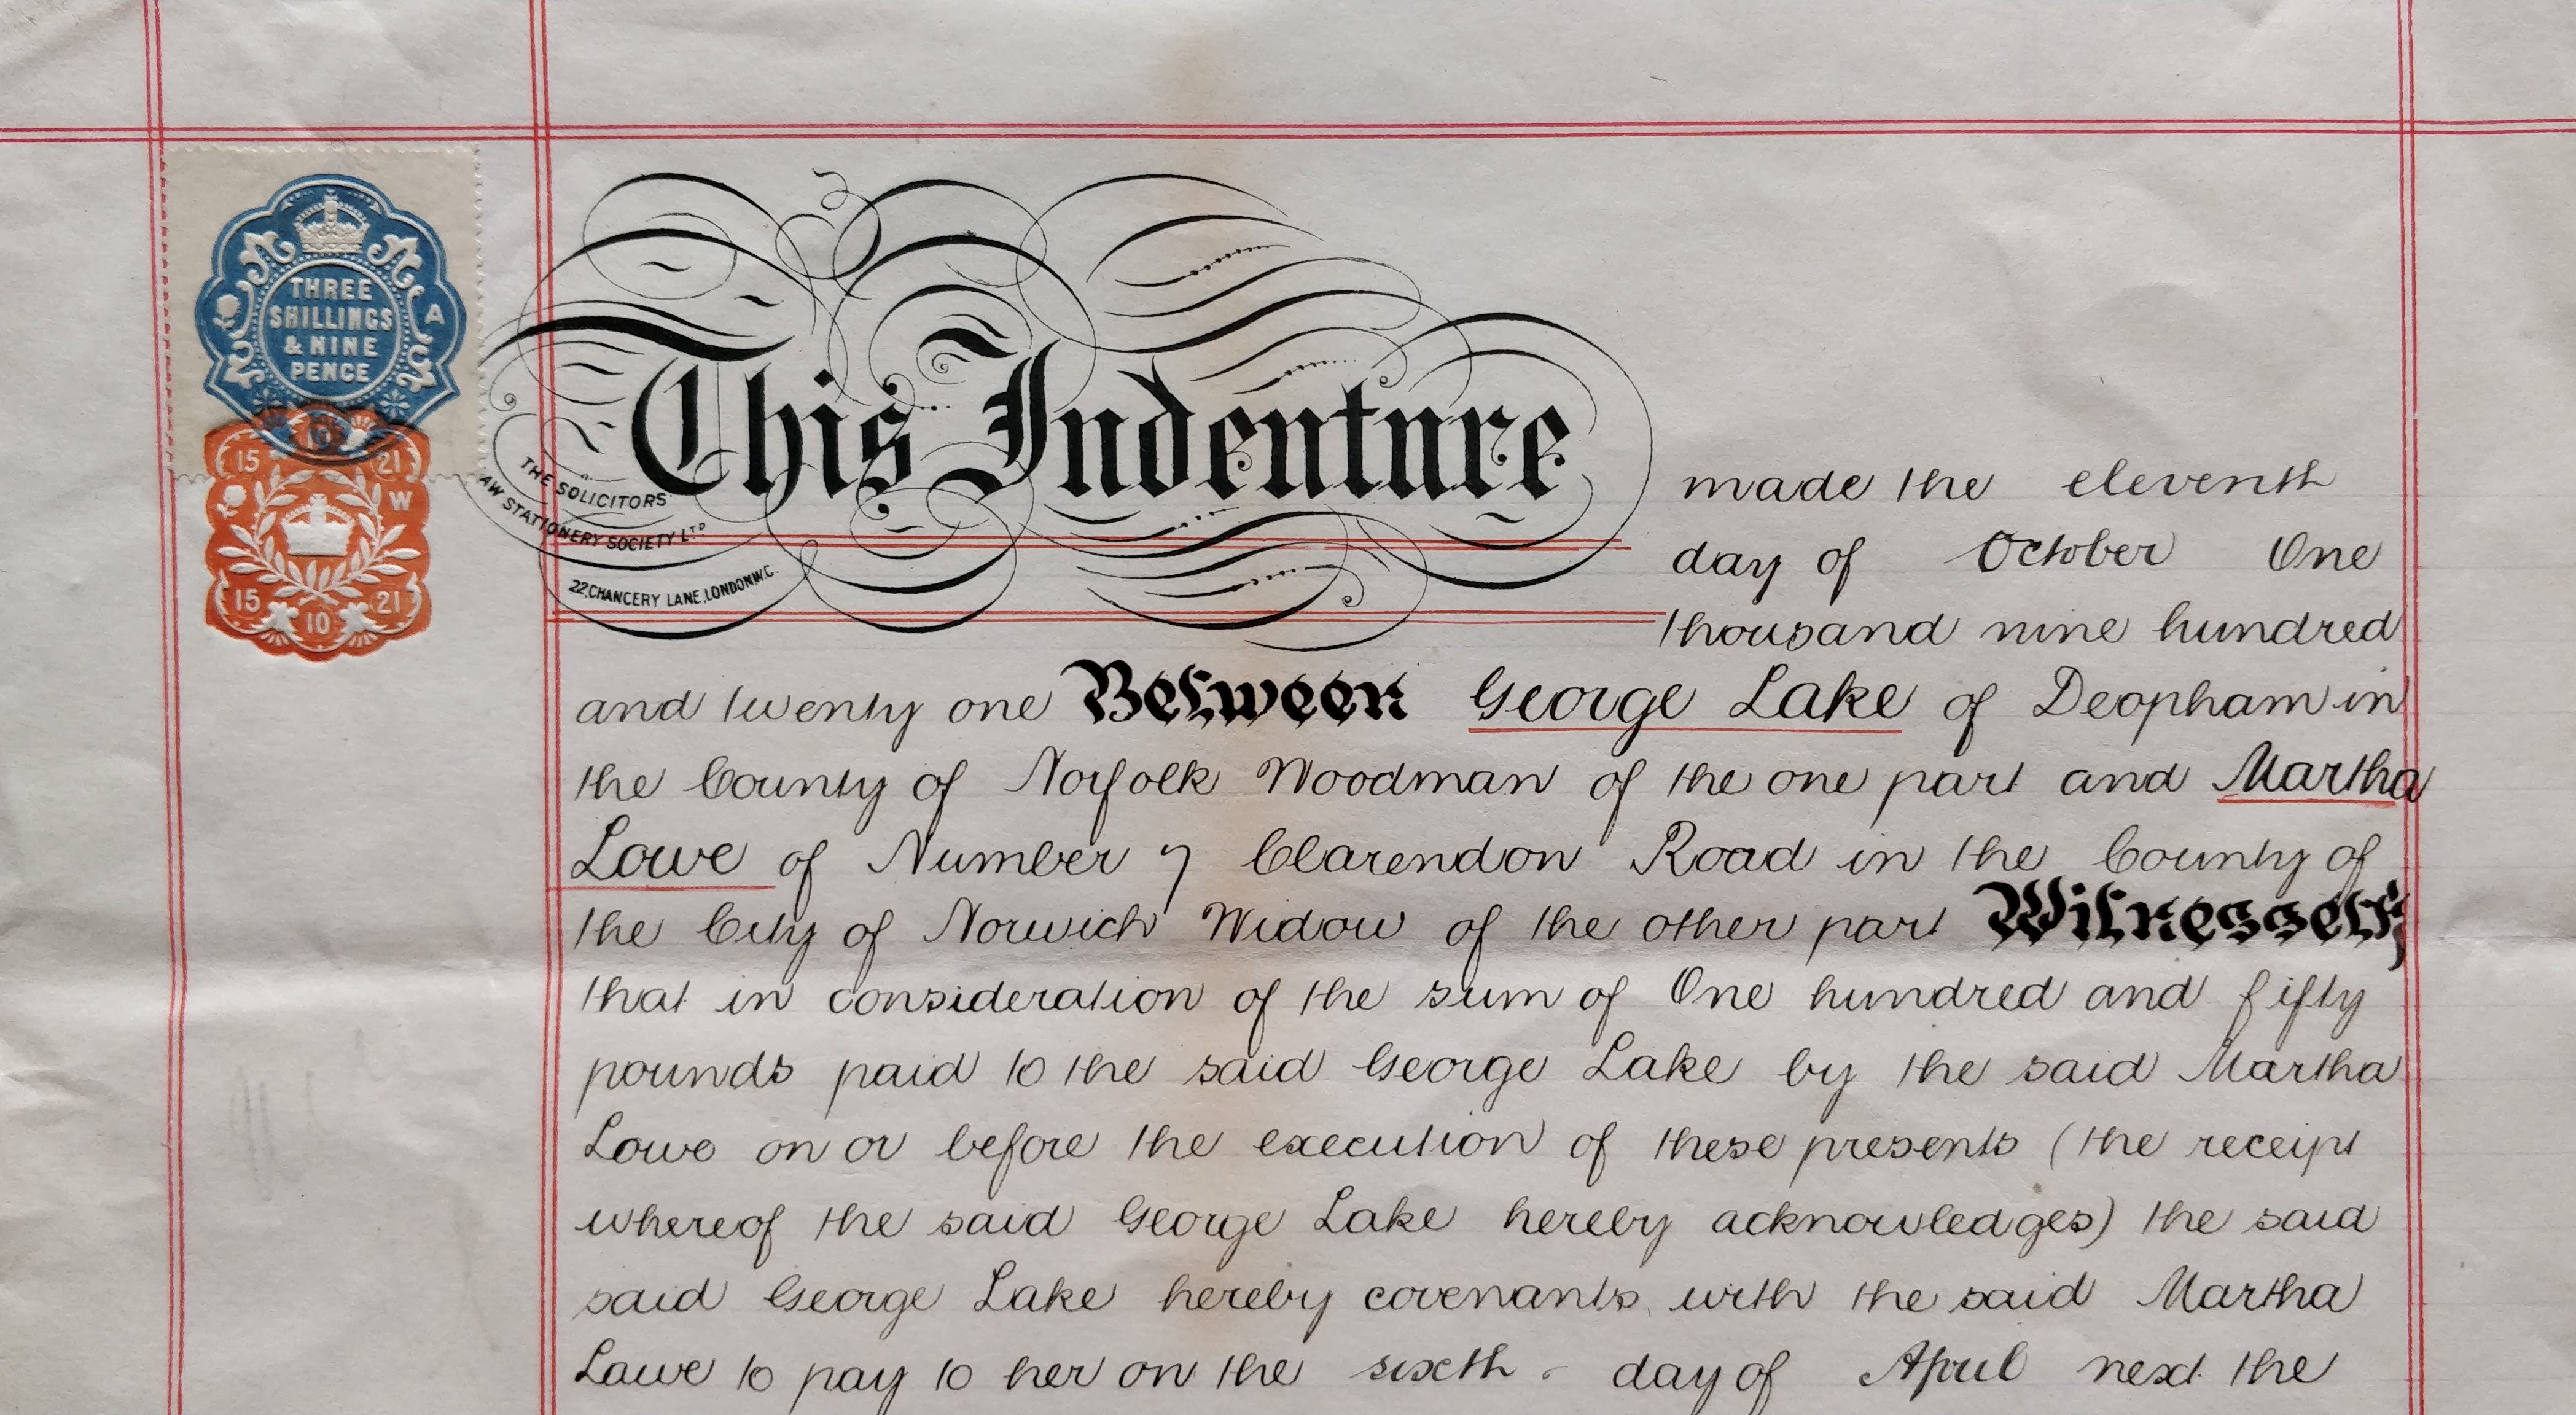 THREE
SHILLINGS
& NINE
PENCE
A
15 10 21
W
15 10 21
This Indenture
THE SOLICITORS
LAW STATIONERY SOCIETY LTD
22, CHANCERY LANE, LONDON W.C.
made the eleventh
day of October One
thousand nine hundred
and twenty one Between George Lake of Deopham in
the County of Norfolk Woodman of the one part and Martha
Lowe of Number 7 Clarendon Road in the County of
the City of Norwich Widow of the other part Witnesseth
that in consideration of the sum of One hundred and fifty
pounds paid to the said George Lake by the said Martha
Lowe on or before the execution of these presents (the receipt
whereof the said George Lake hereby acknowledges) the said
said George Lake hereby covenants with the said Martha
Lawe to pay to her on the sixth day of April next the